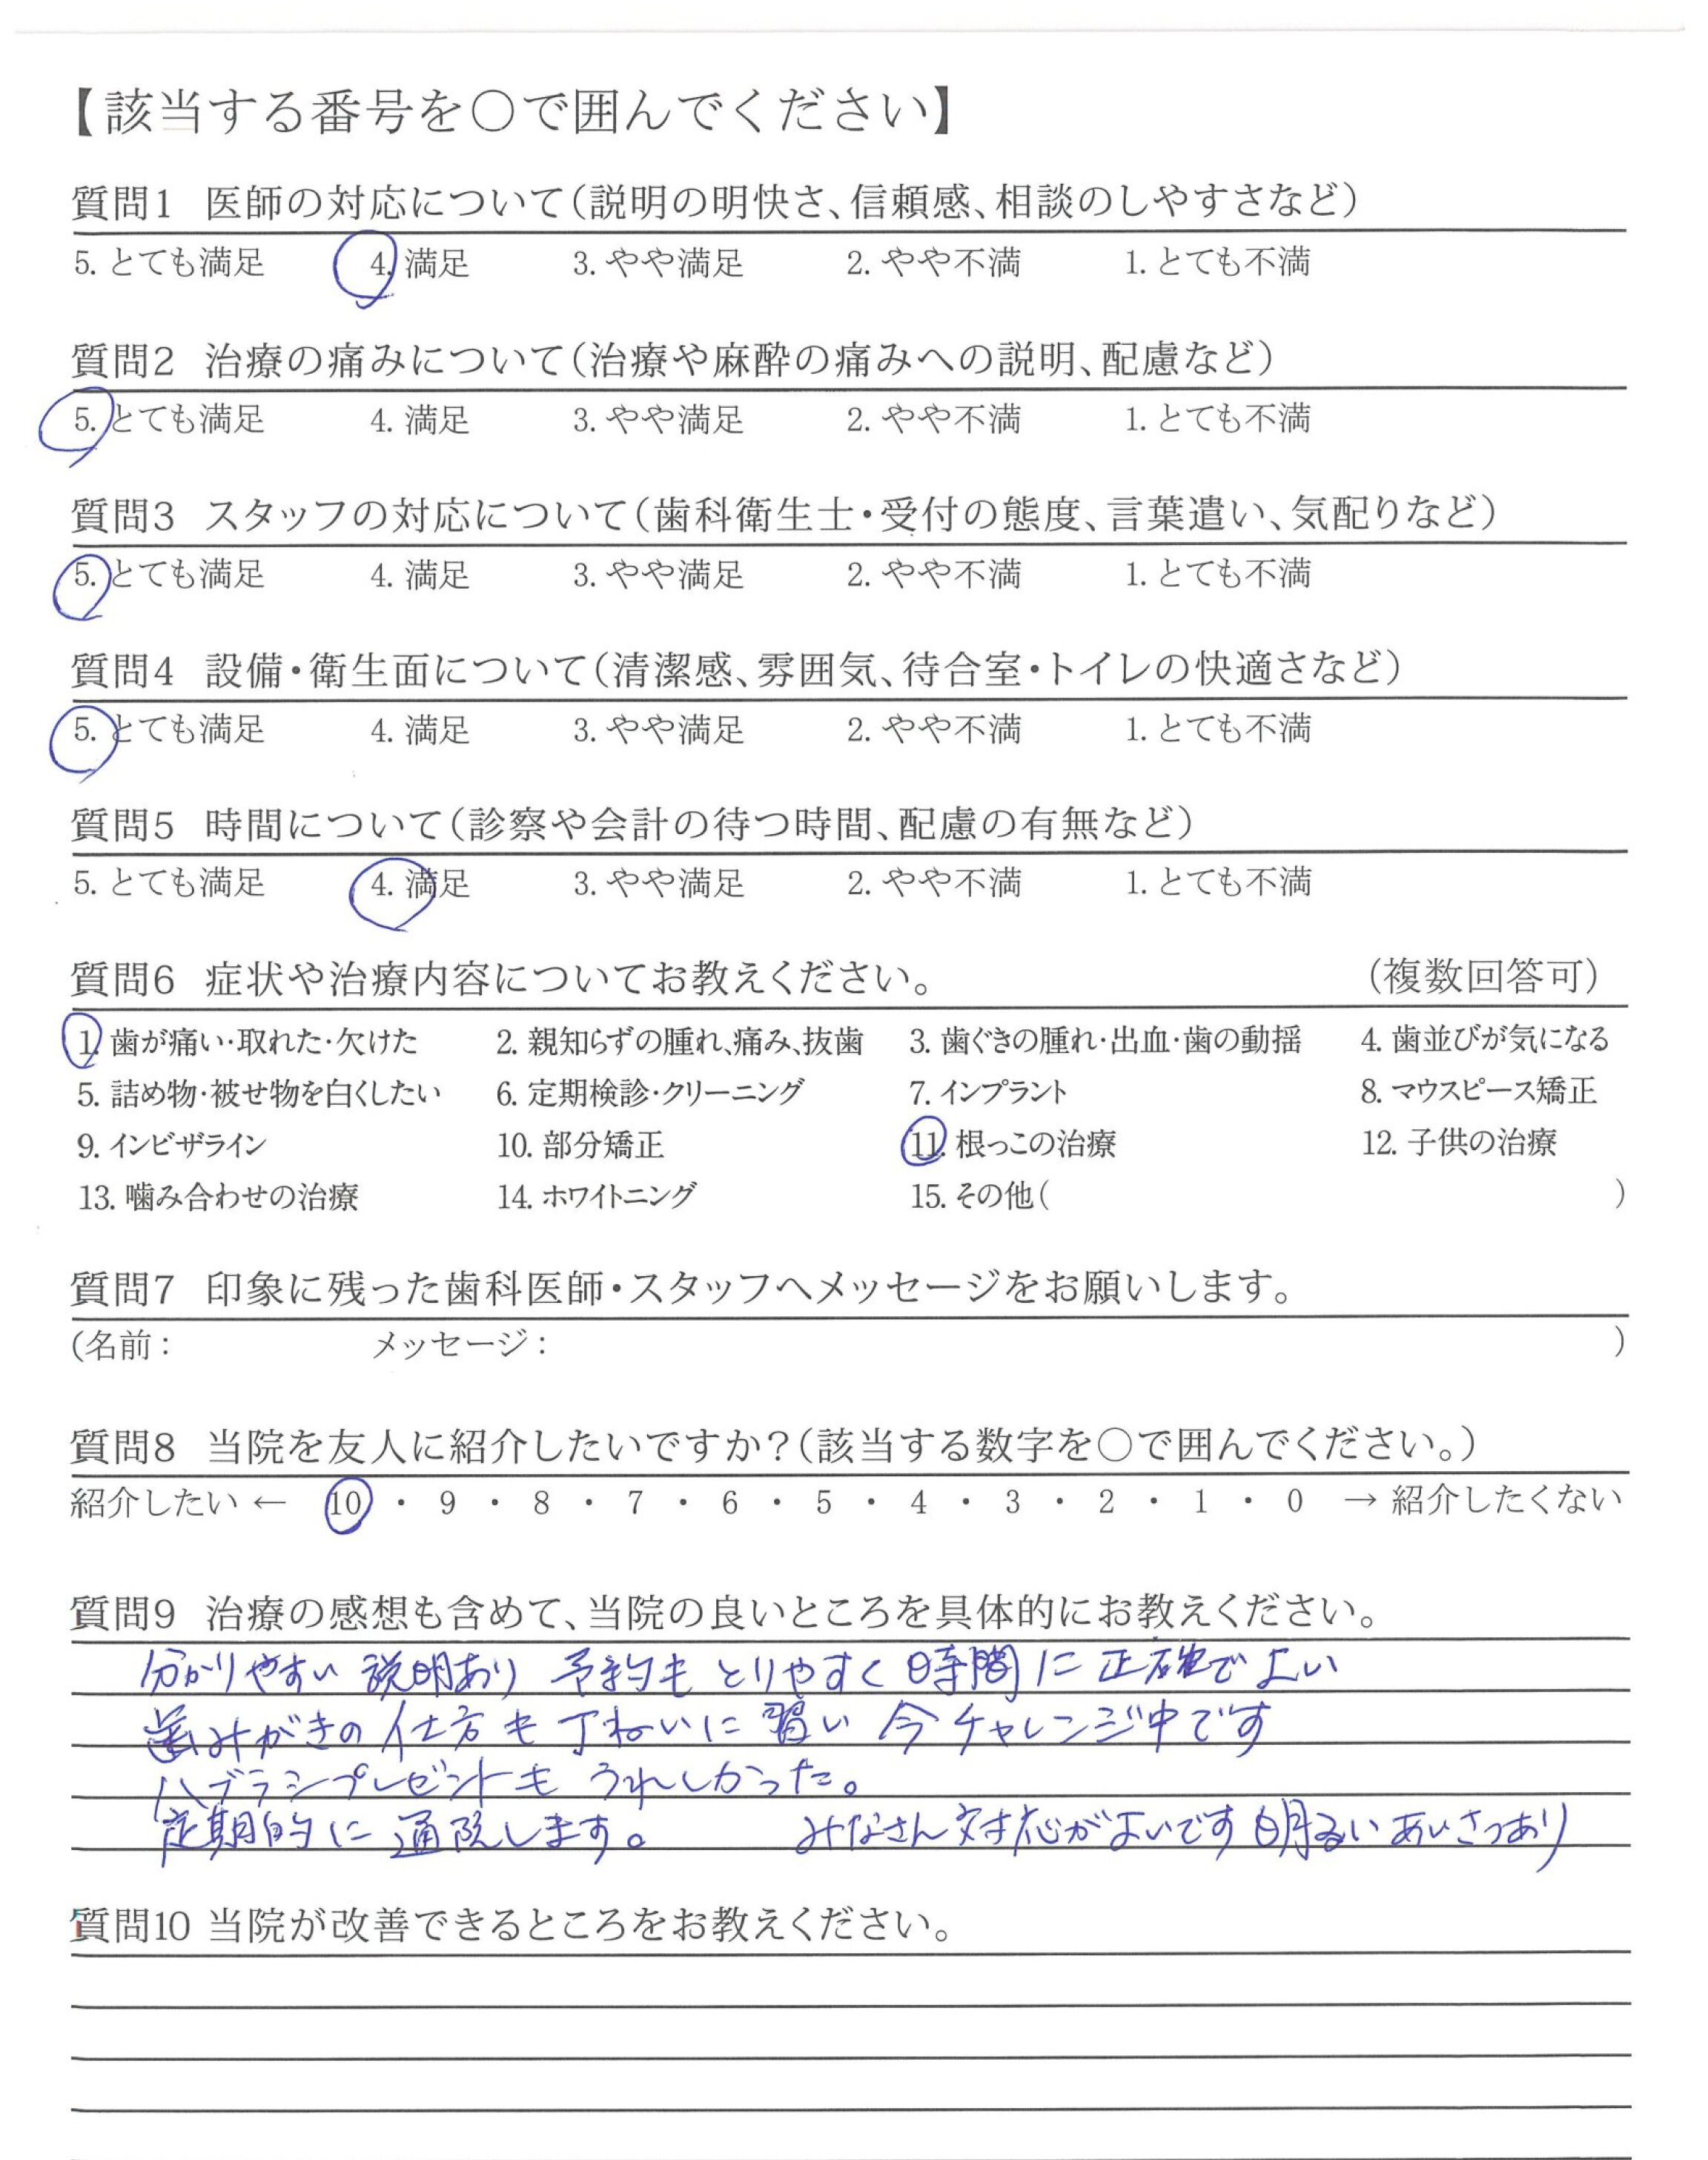 【該当する番号を〇で囲んでください】
質問1 医師の対応について(説明の明快さ、信頼感、相談のしやすさなど)
5. とても満足 4. 満足 3. やや満足 2. やや不満 1. とても不満
質問2 治療の痛みについて(治療や麻酔の痛みへの説明、配慮など)
5. とても満足 4. 満足 3. やや満足 2. やや不満 1. とても不満
質問3 スタッフの対応について(歯科衛生士・受付の態度、言葉遣い、気配りなど)
5. とても満足 4. 満足 3. やや満足 2. やや不満 1. とても不満
質問4 設備・衛生面について(清潔感、雰囲気、待合室・トイレの快適さなど)
5. とても満足 4. 満足 3. やや満足 2. やや不満 1. とても不満
質問5 時間について(診察や会計の待つ時間、配慮の有無など)
5. とても満足 4. 満足 3. やや満足 2. やや不満 1. とても不満
質問6 症状や治療内容についてお教えください。 (複数回答可)
1. 歯が痛い・取れた・欠けた 2. 親知らずの腫れ、痛み、抜歯 3. 歯ぐきの腫れ・出血・歯の動揺 4. 歯並びが気になる
5. 詰め物・被せ物を白くしたい 6. 定期検診・クリーニング 7. インプラント 8. マウスピース矯正
9. インビザライン 10. 部分矯正 11. 根っこの治療 12. 子供の治療
13. 噛み合わせの治療 14. ホワイトニング 15. その他( )
質問7 印象に残った歯科医師・スタッフへメッセージをお願いします。
(名前: メッセージ: )
質問8 当院を友人に紹介したいですか?(該当する数字を〇で囲んでください。)
紹介したい ← 10 ・ 9 ・ 8 ・ 7 ・ 6 ・ 5 ・ 4 ・ 3 ・ 2 ・ 1 ・ 0 → 紹介したくない
質問9 治療の感想も含めて、当院の良いところを具体的にお教えください。
分かりやすい 説明あり 予約も とりやすく 時間に 正確でよい
歯みがきの 仕方も 丁ねいに 習い 今 チャレンジ中です
ハブラシプレゼントも うれしかった。
定期的に 通院します。 みなさん対応がよいです 明るい あいさつあり
質問10 当院が改善できるところをお教えください。